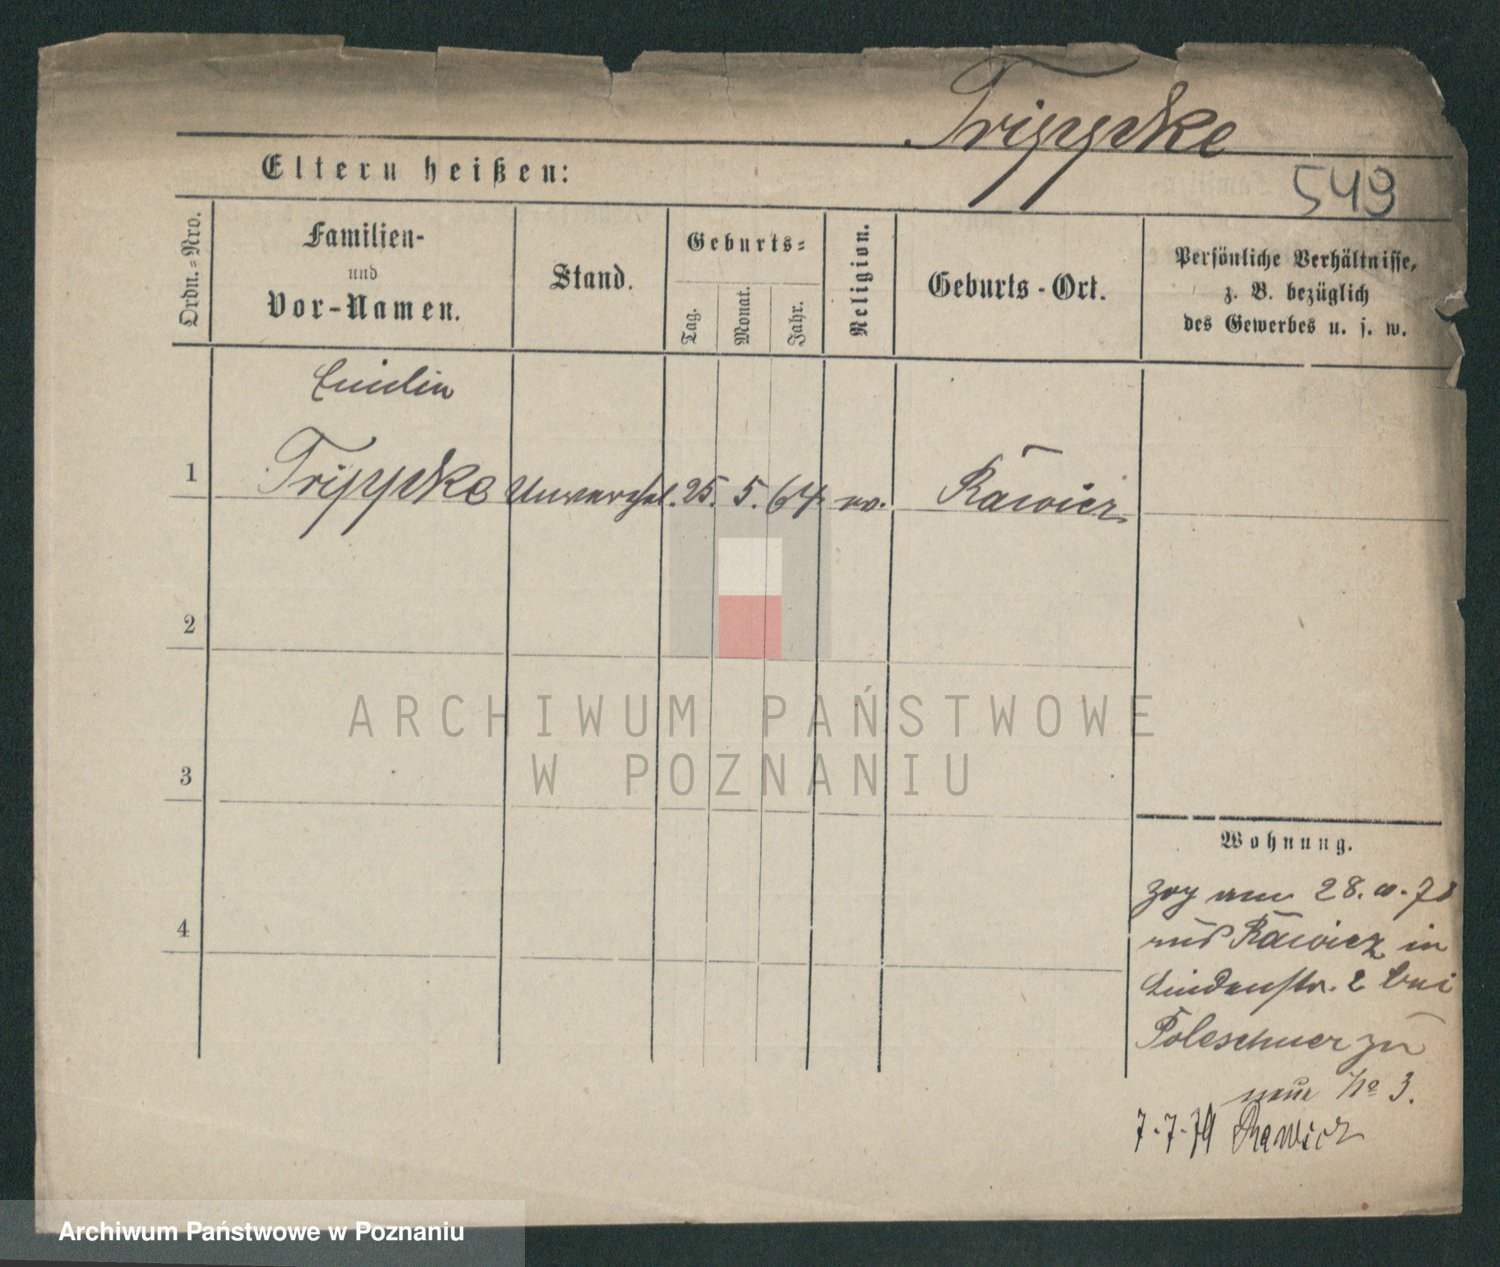 Trippke
Eltern heißen:
549
Ordn.-Nro.
Familien-
und
Vor-Namen.
Stand.
Geburts-
Tag.
Monat.
Jahr.
Religion.
Geburts-Ort.
Persönliche Verhältnisse,
z. B. bezüglich
des Gewerbes u. s. w.
1
Trippke
Unverehel. 25. 5. 64 ev. Rawicz
2
3
4
ARCHIWUM PAŃSTWOWE
W POZNANIU
Wohnung.
zog am 28. 78
aus Rawicz in
Lindenstr. 2 bei
zu
neue No 3.
7.7.79 Rawicz
Archiwum Państwowe w Poznaniu